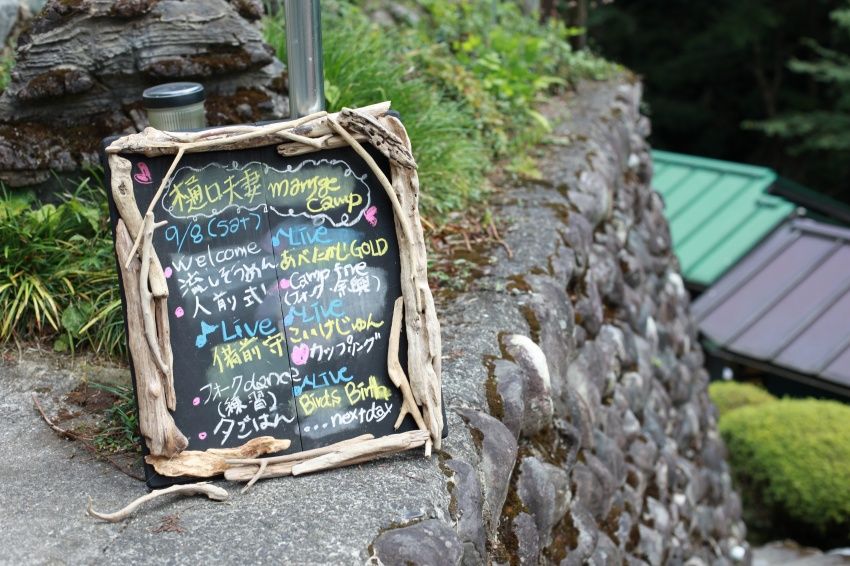 樋口夫妻 marrige
camp
9/8(sat)
welcome
流しそうめん
人前式!
Live
備前守
フォークdance
(練習)
夕ごはん
Live
あべにかじGOLD
Camp fire
Live
こいけじゅん
カップリング
Live
Birds Birth
...next day